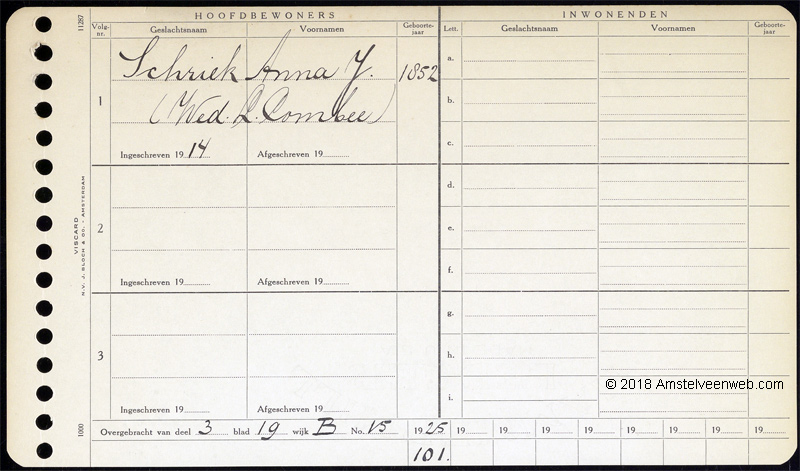 HOOFDBEWONERS INWONENDEN
Volg-nr. Geslachtsnaam Voornamen Geboorte-jaar Lett. Geslachtsnaam Voornamen Geboorte-jaar
1 Schriek Anna J. 1852
(Wed. L. Combee)
Ingeschreven 1914 Afgeschreven 19
2
Ingeschreven 19 Afgeschreven 19
3
Ingeschreven 19 Afgeschreven 19
a.
b.
c.
d.
e.
f.
g.
h.
i.
© 2018 Amstelveenweb.com
Overgebracht van deel 3 blad 19 wijk B No. 15 1925 19 19 19 19 19 19 19 19
101.
11287
VISCARD
N.V. J. BLOCH & CO. - AMSTERDAM
1000